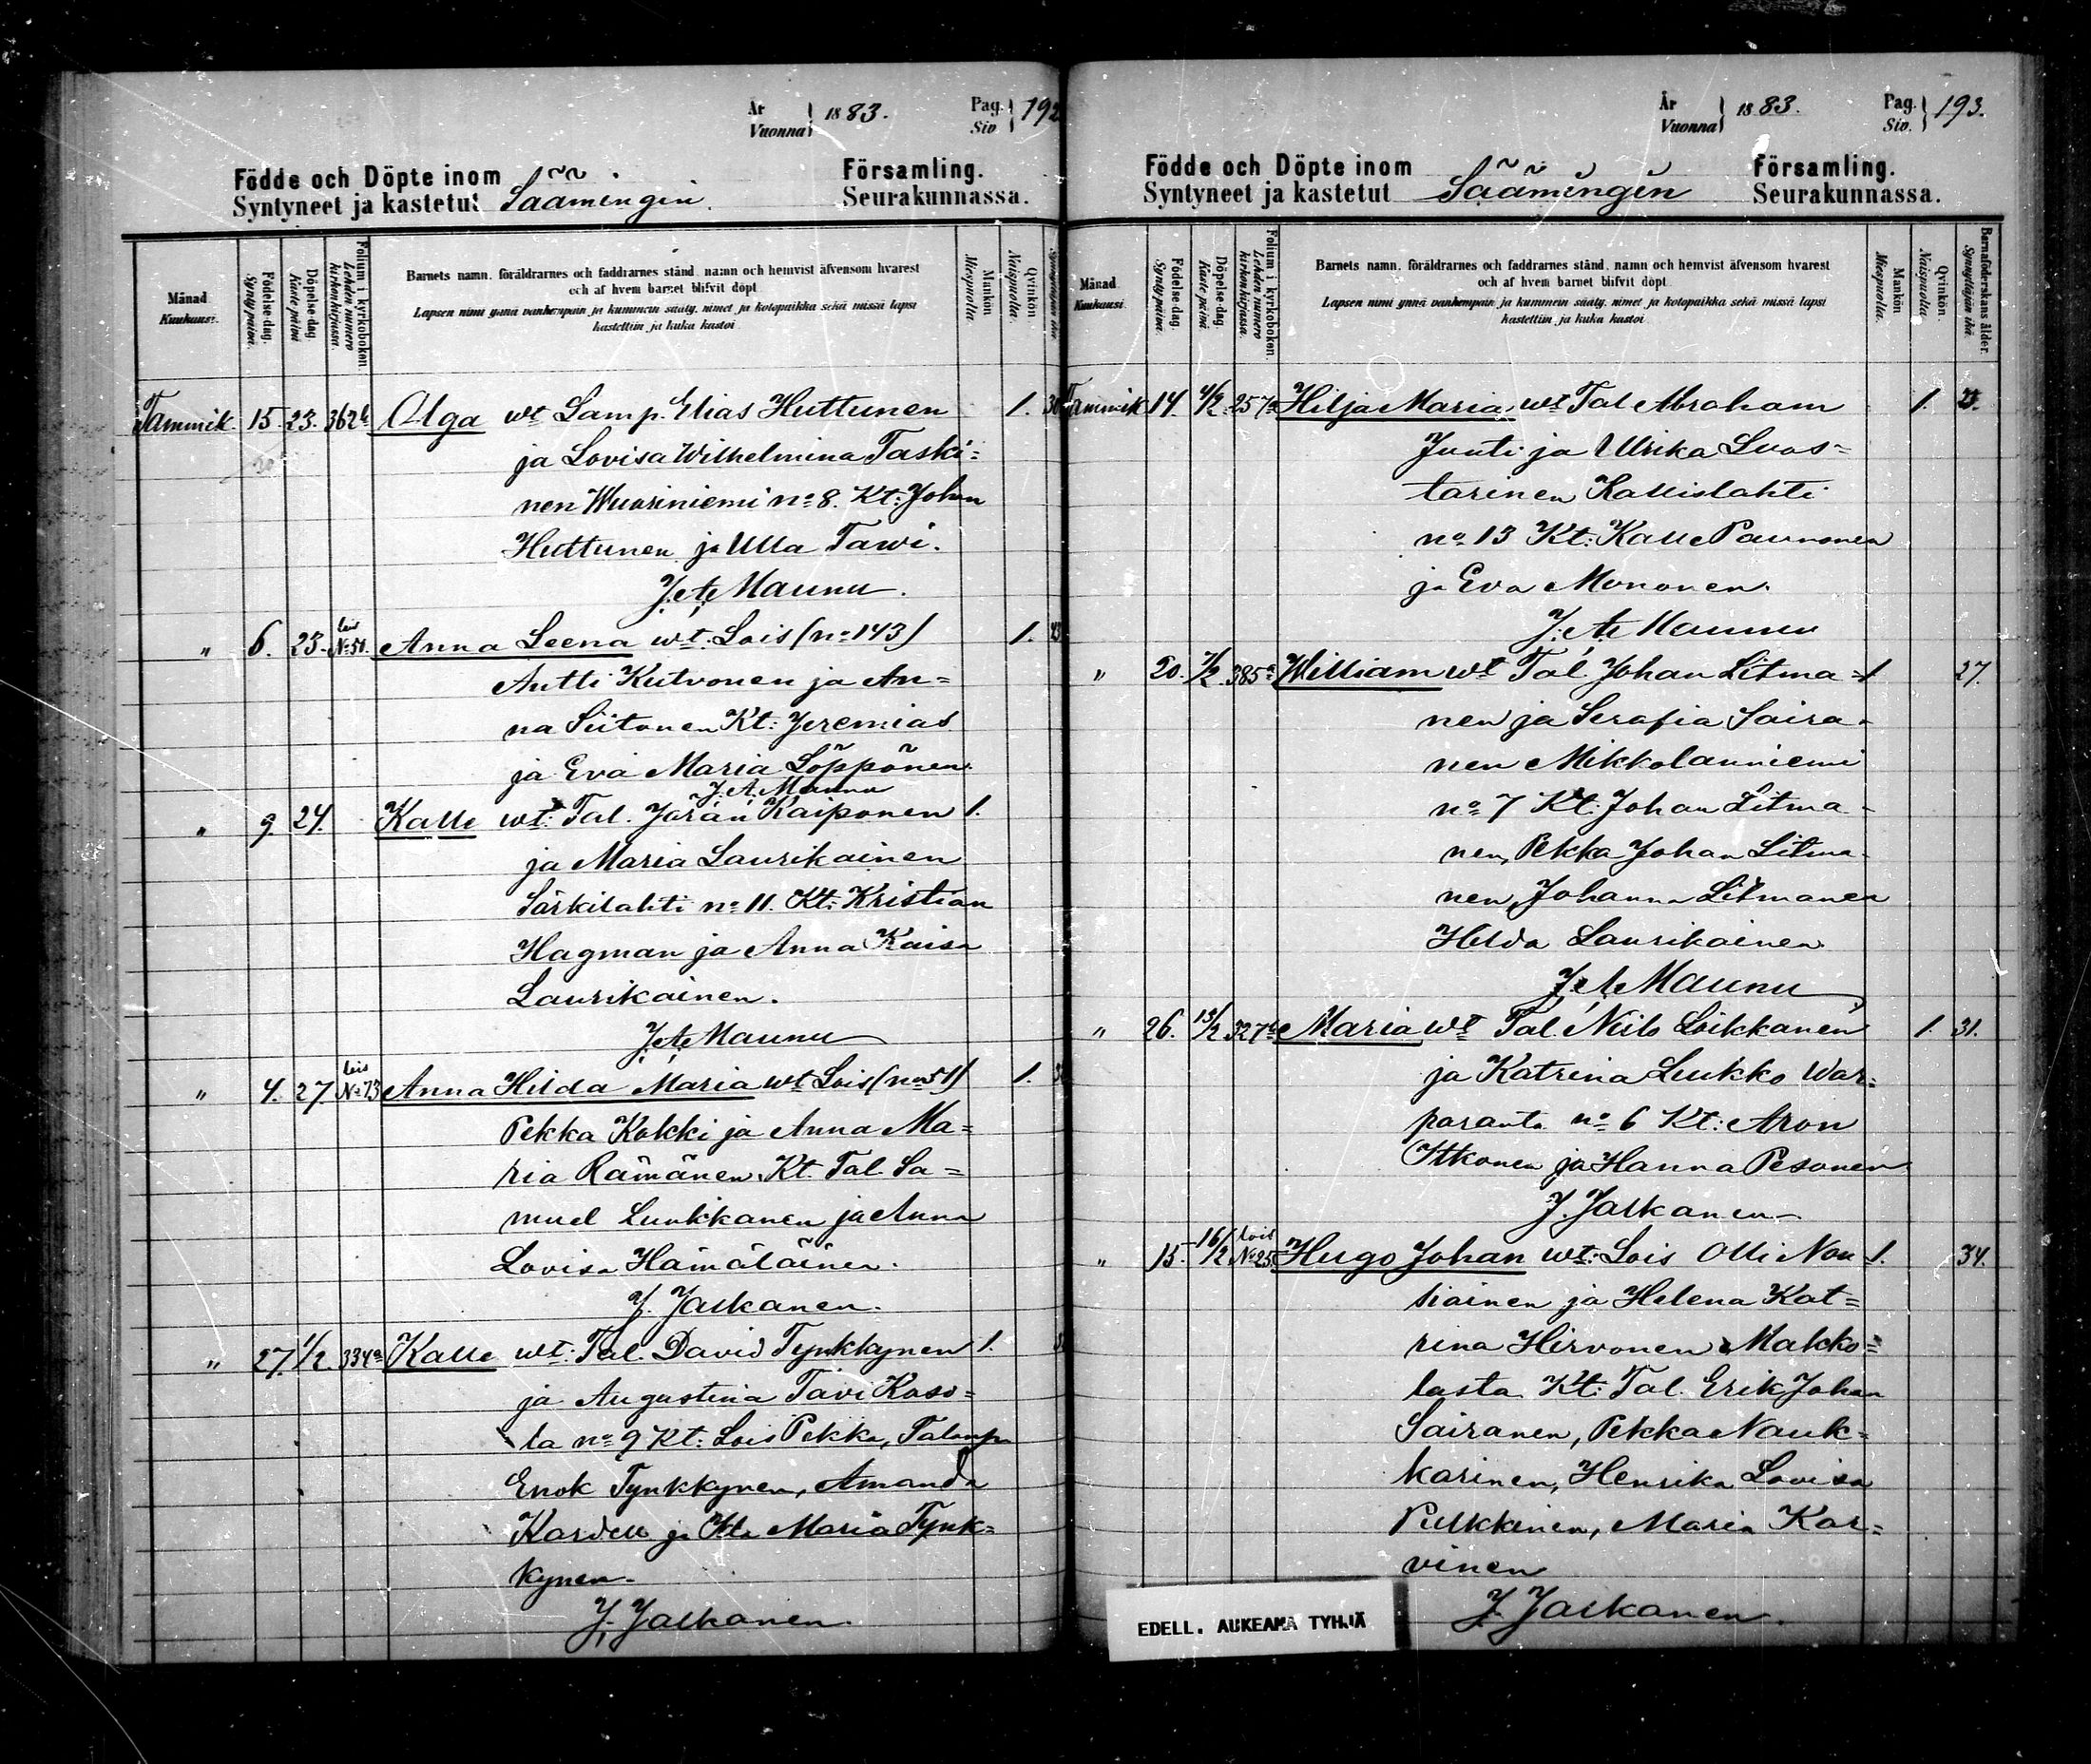 År
Vuonna
1883.
Pag.
Siv
192
Födde och Döpte inom
Syntyneet ja kastetut
Säämingin
Församling.
Seurakunnassa.
Månad
Kuukausi.
Födelse-dag.
Syntypäivä.
Döpelse-dag.
Kastepäivä
Folium i kyrkoboken.
Lehden numero
kirkonkirjassa.
Barnets namn, föräldrarnes och faddrarnes stånd, namn och hemvist äfvensom hvarest
och af hvem barnet blifvit döpt
Lapsen nimi ynnä vanhempain ja kummein sääty, nimet ja kotopaikka sekä missä lapsi
kastettiin ja kuka kastoi
Mankön
Miespuolia.
Qvinkön
Naispuolia.
Tammik. 15. 23. 362b Olga wt Lamp. Elias Huttunen 1. 30
ja Lovisa Wilhelmina Taski=
nen Wuoriniemi no 8. Kt: Johan
Huttunen ja Ulla Tawi.
J. A. Maunu.
" 6. 23. lois No 51. Anna Leena wt. Lois (no 143) 1. 23
Antti Kutvonen ja An=
na Siitonen Kt: Jeremias
ja Eva Maria Löppönen.
J. A. Maunu
" 9 24. Kalle wt: Tal. Jöran Kaiponen 1.
ja Maria Laurikainen
Särkilahti no 11. Kt: Kristian
Hagman ja Anna Kaisa
Laurikainen.
J. A. Maunu
" 4. 27. lois No 73 Anna Hilda Maria wt Lois (no 51) 1.
Pekka Kokki ja Anna Ma=
ria Rämänen. Kt. Tal. Sa=
muel Luukkanen ja Anna
Lovisa Hämäläinen.
J. Jalkanen.
" 27. 1/2 334a Kalle wt: Tal. David Tynkkynen 1.
ja Augustina Tavi Koso=
la no 9 Kt: Lois Pekka,
Enok Tynkkynen, Amanda
Kardell ja Ida Maria Tynk=
kynen.
J. Jalkanen.
År
Vuonna
1883.
Pag.
Siv.
193.
Födde och Döpte inom
Syntyneet ja kastetut
Säämingin
Församling.
Seurakunnassa.
Månad
Kuukausi.
Födelse-dag.
Syntypäivä.
Döpelse-dag.
Kastepäivä
Folium i kyrkoboken.
Lehden numero
kirkonkirjassa.
Barnets namn, föräldrarnes och faddrarnes stånd, namn och hemvist äfvensom hvarest
och af hvem barnet blifvit döpt
Lapsen nimi ynnä vanhempain ja kummein sääty, nimet ja kotopaikka sekä missä lapsi
kastettiin ja kuka kastoi
Mankön
Miespuolia.
Qvinkön.
Naispuolia.
Barnaföderskans ålder.
Synnyttäjän ikä.
Tammik 14. 4/2 257a Hilja Maria, wt Tal Abraham 1.
Juuti ja Ulrika Luos=
tarinen Kallislahti
no 13 Kt: Kalle Paunonen
ja Eva Mononen.
J. A. Maunu
" 20. 7/2 385a William wt Tal. Johan Litma= 1 27.
nen ja Serafia Saira=
nen Mikkolanniemi
no 7 Kt: Johan Litma=
nen, Pekka Johan Litma=
nen, Johanna Litmanen
Helda Laurikainen
J. A. Maunu
" 26. 13/2 327b Maria wt Tal. Niilo Loikkanen 1. 31.
ja Katrina Leukko War=
paranta no 6 Kt: Aron
Itkonen ja Hanna Pesonen
J. Jalkanen
" 15. 16/2 lois No 25. Hugo Johan wt: Lois Olli Nou 1. 34.
siainen ja Helena Kat=
rina Hirvonen Makko=
lasta Kt: Tal. Erik Johan
Sairanen, Pekka Nauk=
karinen, Henrika Lovisa
Pulkkinen, Maria Kar=
vinen
J. Jalkanen.
EDELL. AUKEAMA TYHJÄ